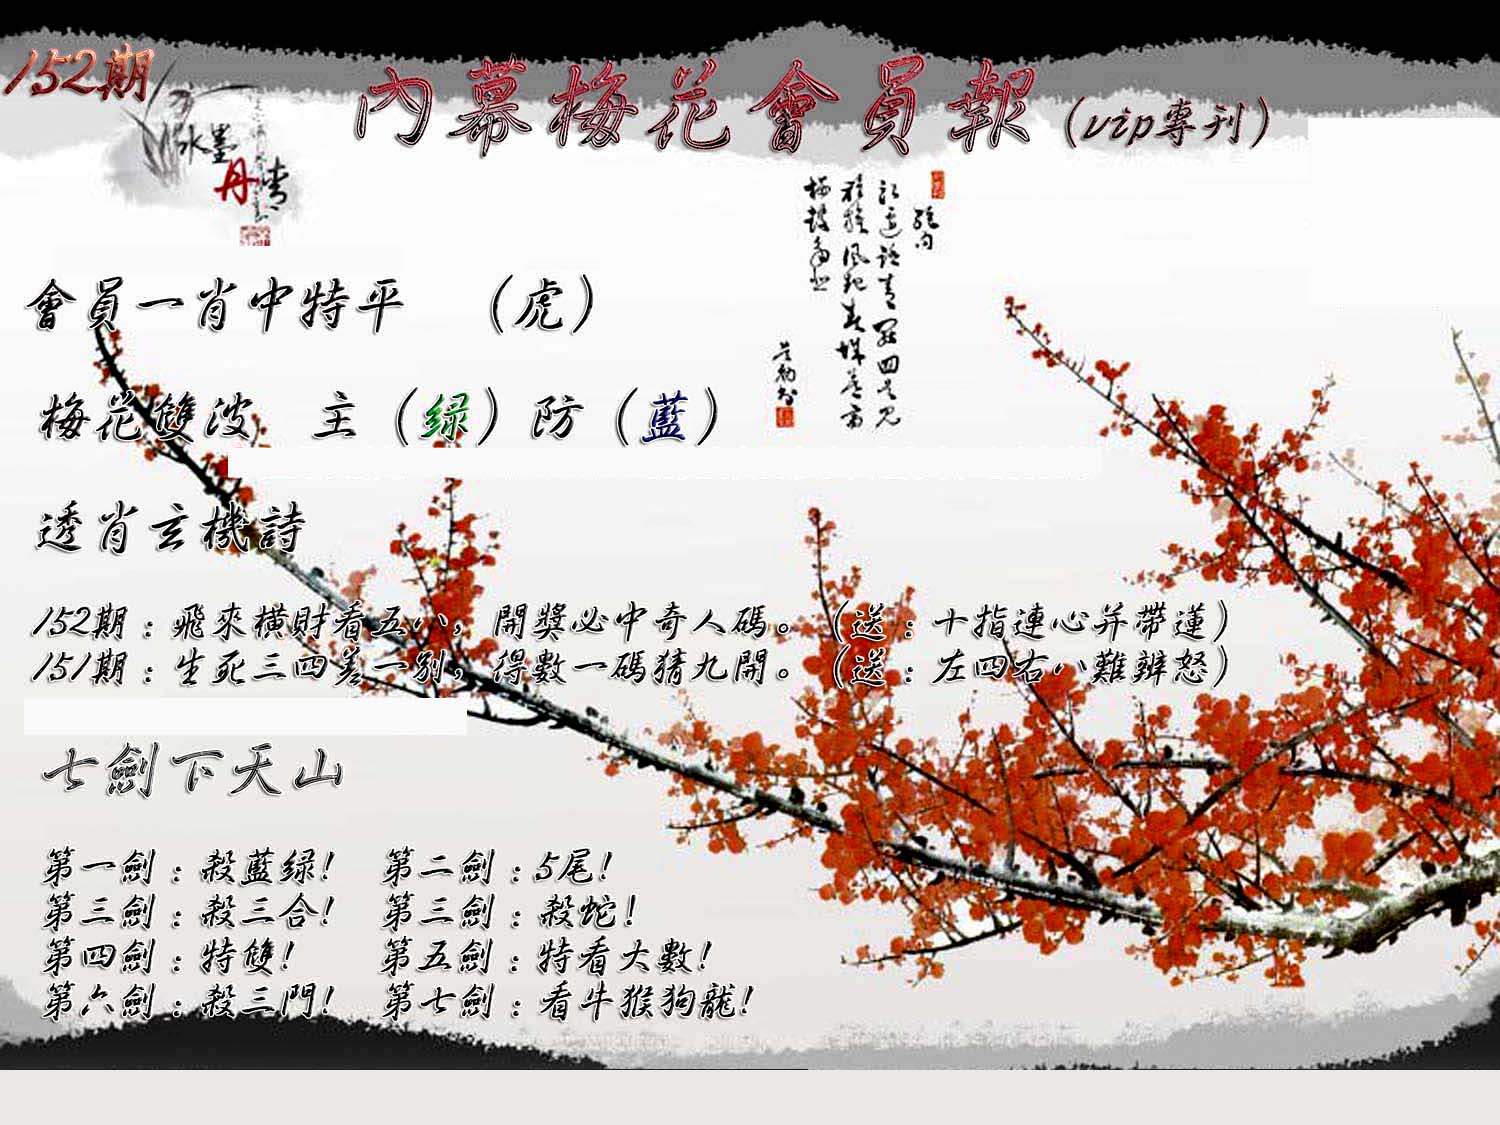 152期
內幕梅花會員報(vip專刊)
水墨
丹青
會員一肖中特平 （虎）
梅花雙波 主（綠）防（藍）
透肖玄機詩
152期：飛來橫財看五八，開獎必中奇人碼。（送：十指連心并帶蓮）
151期：生死三四差一別，得數一碼猜九開。（送：左四右八難辨怒）
七劍下天山
第一劍：殺藍綠! 第二劍：5尾!
第三劍：殺三合! 第三劍：殺蛇!
第四劍：特雙! 第五劍：特看大數!
第六劍：殺三門! 第七劍：看牛猴狗龍!